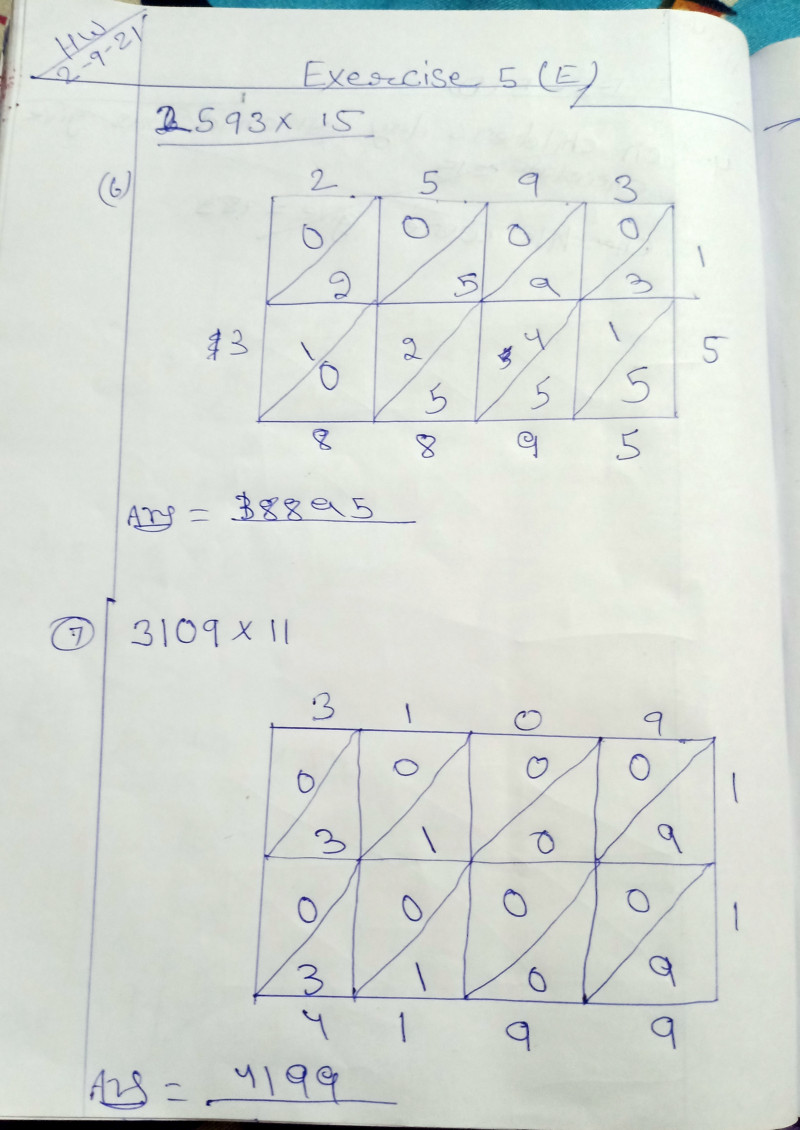 HW
2-9-21
Exercise 5 (E)
2593 x 15
(6)
2 5 9 3
0 0 0 0
1
2 5 9 3
1 2 4 1
3
5
0 5 5 5
8 8 9 5
Ans = 38895
7 3109 x 11
3 1 0 9
0 0 0 0
1
3 1 0 9
0 0 0 0
1
3 1 0 9
4 1 9 9
Ans = 4199